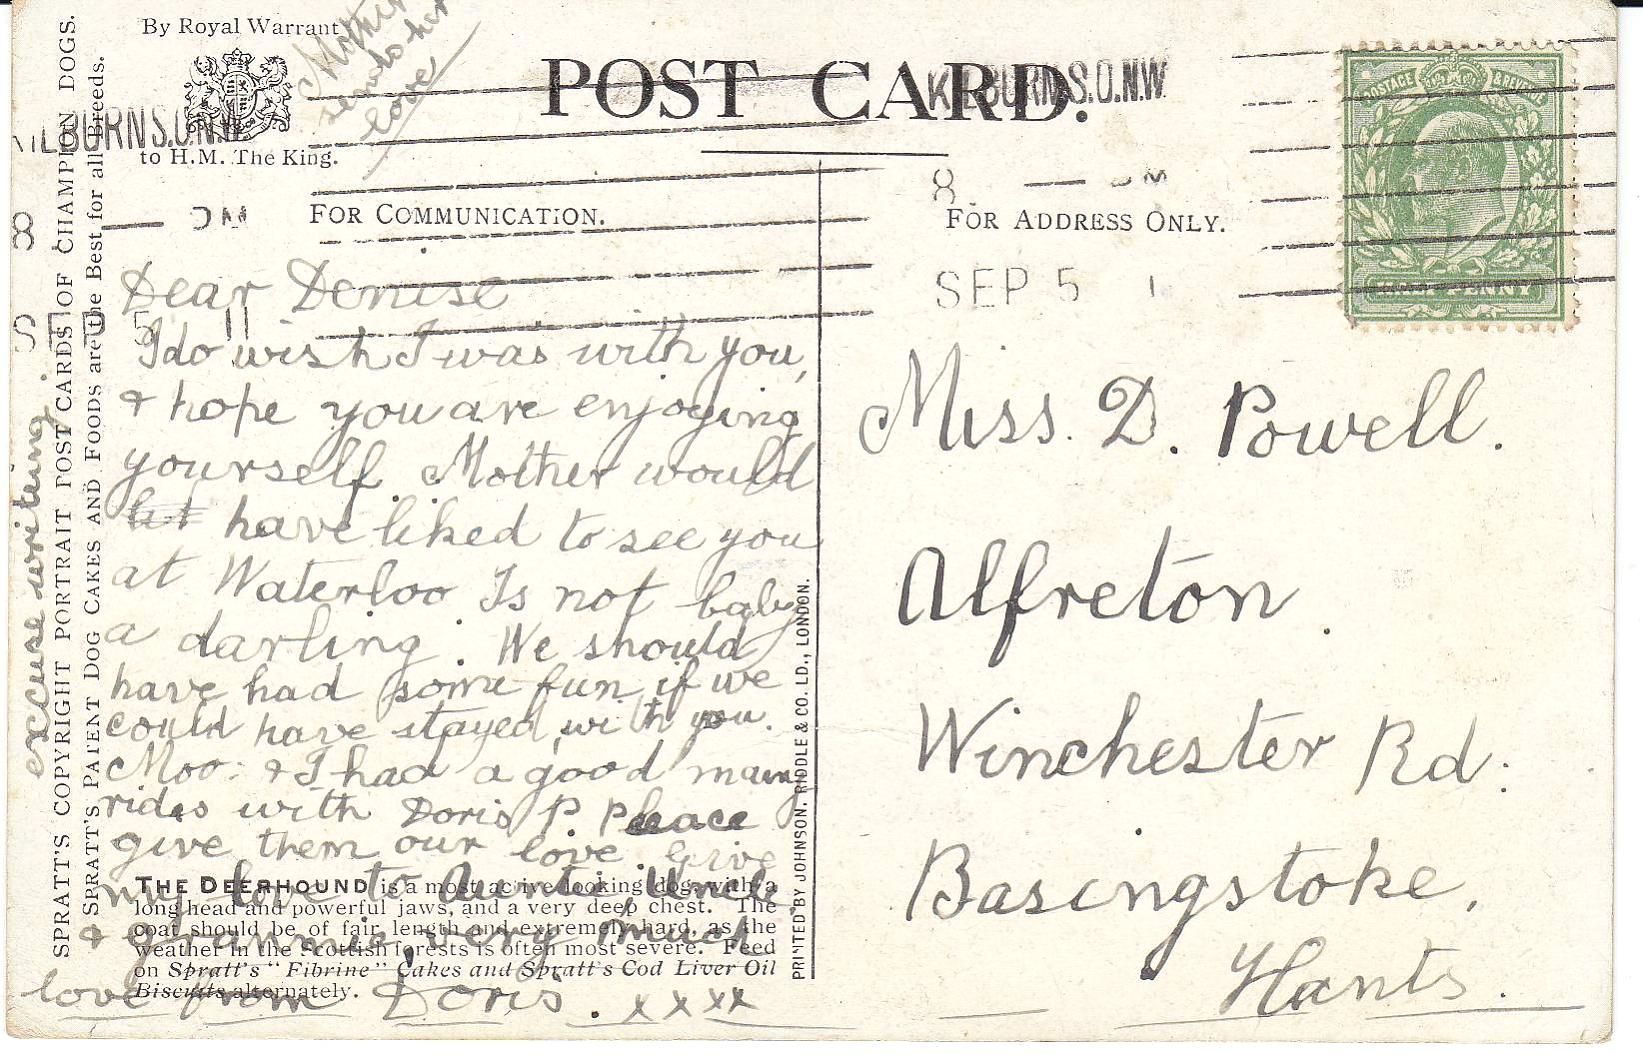 By Royal Warrant
to H.M. The King.
Mother
sends her
love
POST CARD.
KILBURN S.O. N.W
KILBURN S.O. N.W
8 — PM
SEP 5 11
8. — PM
SEP 5 1
POSTAGE & REVENUE
HALFPENNY
FOR COMMUNICATION.
FOR ADDRESS ONLY.
Dear Denise
I do wish I was with you,
& hope you are enjoying
yourself. Mother would
have liked to see you
at Waterloo Is not baby
a darling. We should
have had some fun if we
could have stayed with you.
Moo: & I had a good many
rides with Doris P. Please
give them our love. Give
my love to Auntie Uncle
& Grannie very much
love from Doris. x x x x
excuse writing.
Miss. D. Powell.
Alfreton.
Winchester Rd.
Basingstoke,
Hants.
THE DEERHOUND is a most active looking dog, with a
long head and powerful jaws, and a very deep chest. The
coat should be of fair length and extremely hard, as the
weather in the Scottish forests is often most severe. Feed
on Spratt's "Fibrine" Cakes and Spratt's Cod Liver Oil
Biscuits alternately.
SPRATT'S COPYRIGHT PORTRAIT POST CARDS OF CHAMPION DOGS.
SPRATT'S PATENT DOG CAKES AND FOODS are the Best for all Breeds.
PRINTED BY JOHNSON, RIDDLE & CO. LD., LONDON.